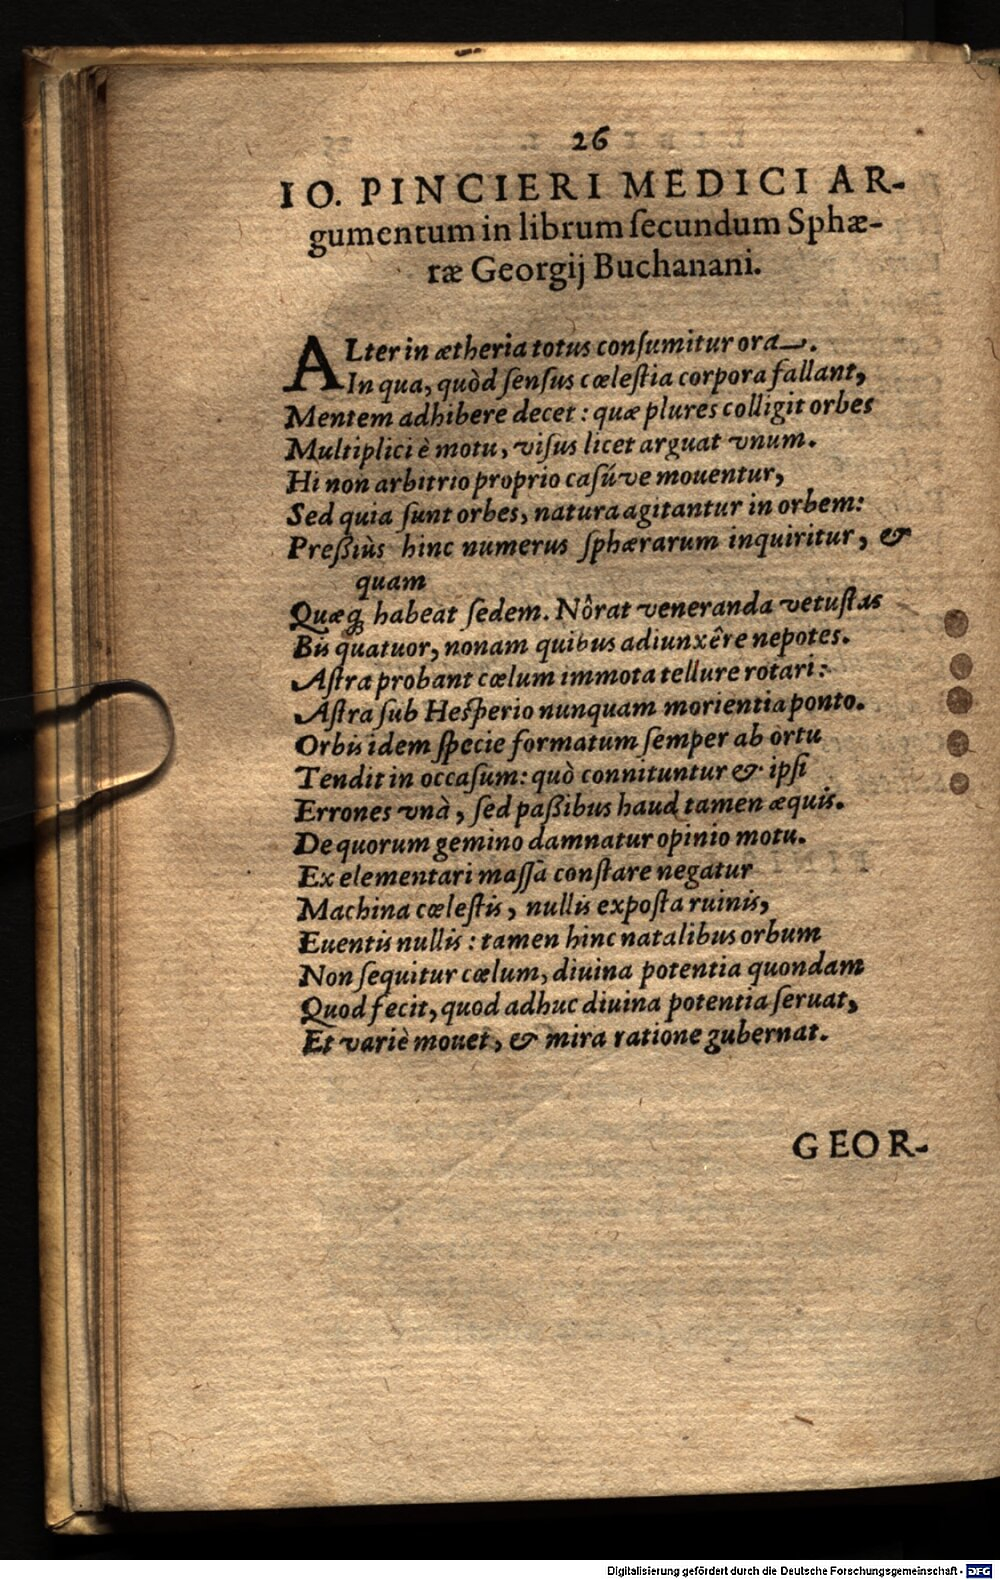 26
IO. PINCIERI MEDICI AR-
gumentum in librum ſecundum Sphæ-
ræ Georgij Buchanani.
ALter in ætheria totus conſumitur ora.
In qua, quòd ſenſus cœleſtia corpora fallant,
Mentem adhibere decet: quæ plures colligit orbes
Multiplici è motu, viſus licet arguat vnum.
Hi non arbitrio proprio caſúve mouentur,
Sed quia ſunt orbes, natura agitantur in orbem:
Preßiùs hinc numerus ſphærarum inquiritur, &
quam
Quæq; habeat ſedem. Nôrat veneranda vetuſtas
Bis quatuor, nonam quibus adiunxêre nepotes.
Aſtra probant cœlum immota tellure rotari:
Aſtra ſub Heſperio nunquam morientia ponto.
Orbis idem ſpecie formatum ſemper ab ortu
Tendit in occaſum: quò connituntur & ipſi
Errones vnà, ſed paßibus haud tamen æquis.
De quorum gemino damnatur opinio motu.
Ex elementari maſſâ conſtare negatur
Machina cœleſtis, nullis expoſta ruinis,
Euentis nullis: tamen hinc natalibus orbum
Non ſequitur cœlum, diuina potentia quondam
Quod fecit, quod adhuc diuina potentia ſeruat,
Et variè mouet, & mira ratione gubernat.
GEOR-
Digitalisierung gefördert durch die Deutsche Forschungsgemeinschaft - DFG